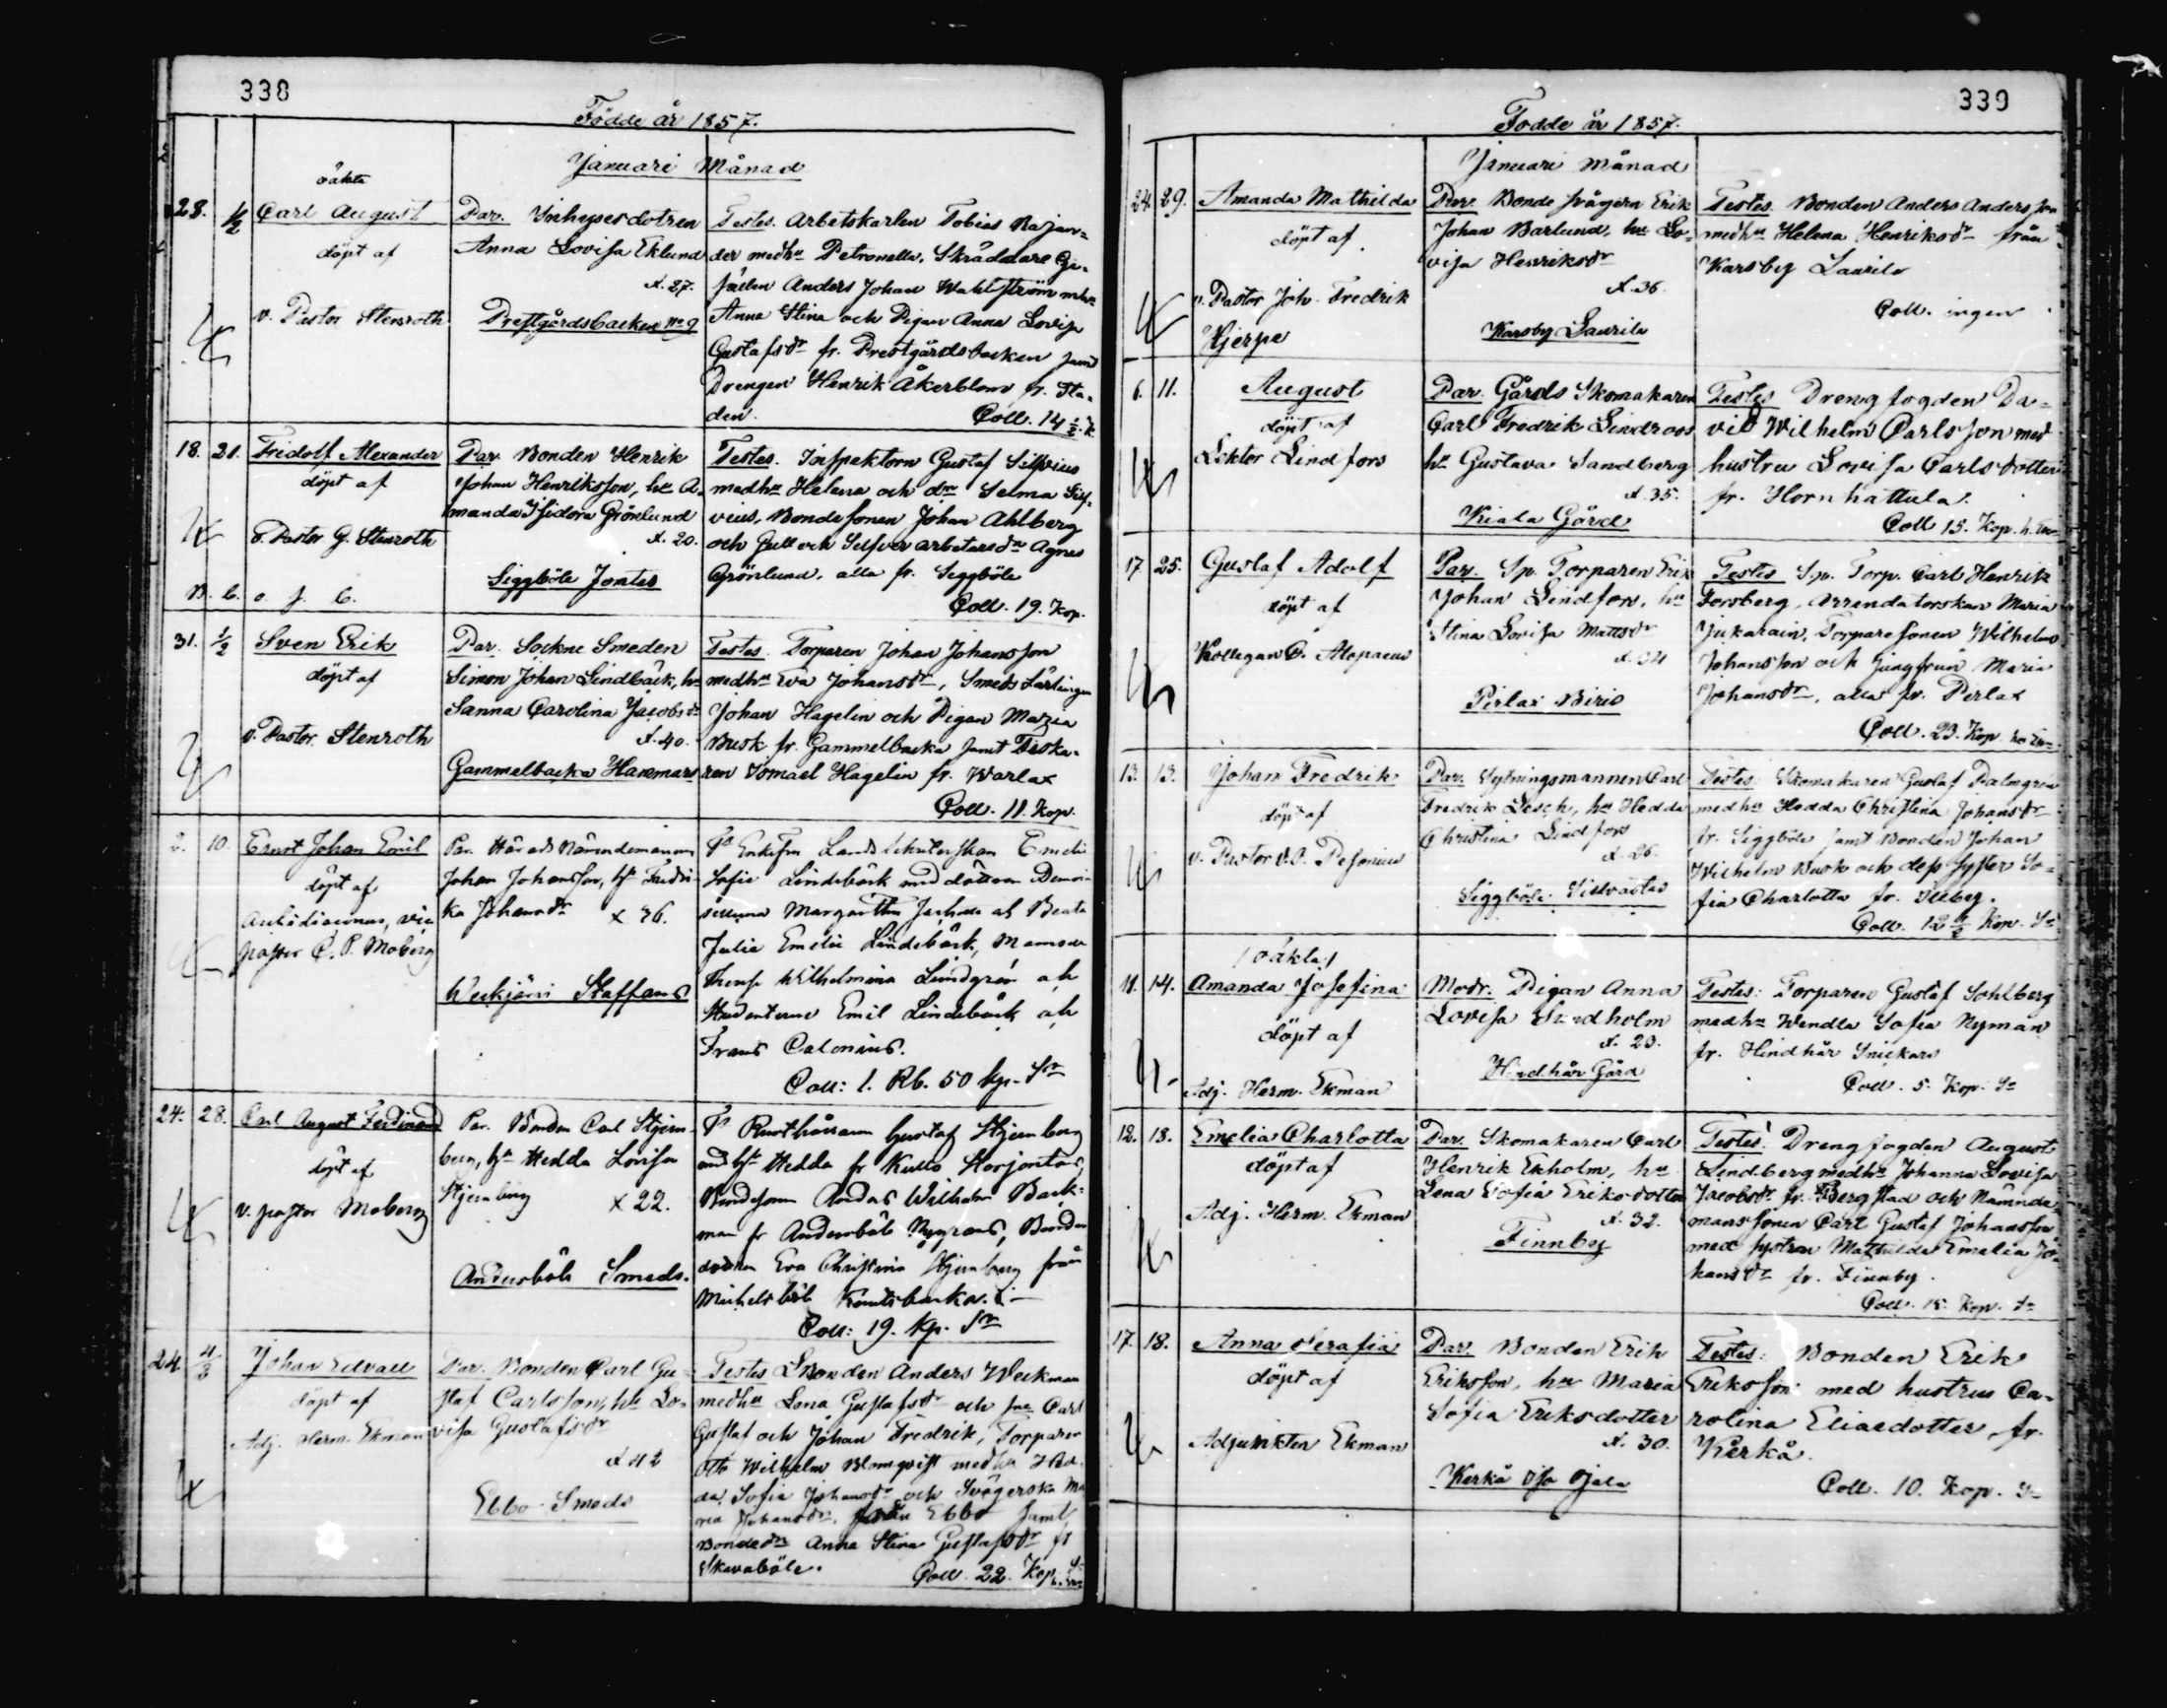 338
Födde år 1857.
Januari Månad
oäkta
28. 1/2 Carl August
döpt af
v. Pastor Stenroth
Par. Inhysesdotren
Anna Lovisa Eklund
27.
Prestgårdsbacken No 9
Testes. Arbetskarlen Tobias Rajan-
der medhu Petronella, Skräddare Ge-
sällen Anders Johan Wahlström mhu
Anna Stina och Pigan Anna Lovisa
Gustafsdr fr. Prestgårdsbacken samt
Drengen Henrik Åkerblom fr. Sta-
den. Coll. 14 1/2 K.
18. 21. Fridolf Alexander
döpt af
v. Pastor G. Stenroth
N. B. o. f. b.
Par. Bonden Henrik
Johan Henriksson, hu A-
manda Isidora Grönlund
20.
Siggböle Jontes
Testes. Inspektorn Gustaf Silfvius
medhu Helena och dn Selma Silf-
vius, Bondesonen Johan Ahlberg
och Gull och Silfver arbetaredn Agnes
Grönlund, alla fr. Seggböle
Coll. 19. Kop.
31. 1/2 Sven Erik
döpt af
v. Pastor Stenroth
Par. Sockne Smeden
Simon Johan Lindbäck, hu
Sanna Carolina Jacobsdr
40.
Gammelbacka Hammars
Testes. Torparen Johan Johansson
medhu Eva Johansdr, Smeds Lärlingen
Johan Hagelin och Pigan Maria
Busk fr. Gammelbacka samt Fiska-
ren Ismael Hagelin fr. Warlax
Coll. 11. Kop.
2. 10. Ernst Johan Emil
döpt af
vice
pastor C. P. Moberg
Par. Härads Nämndemannen
Johan Johansson, hu Fredri-
ka Johansdr 36.
Weckjärvi Staffans
Ts Enkefru Emelie
Sofie Lindebäck med döttrar Demoi-
sellerna Margaretha och Beata
Julia Emelie Lindebäck, Mamsell
Wilhelmina Lundgrén och
Studenterne Emil Lindebäck och
Frans Calonius.
Coll: 1. Rb. 50 kp. Sr
24. 28. Carl August Ferdinand
döpt af
v. pastor Moberg
Par. Bonden Carl Stjern-
berg, hu Hedda Lovisa
Stjernberg 22.
Andersböle Smeds.
Ts Rusthållaren Gustaf Stjernberg
med hu Hedda fr Kullo Storjontas,
Bondesonen Anders Wilhelm Back-
man fr Andersböle Nygrans, Bonde
dottren Eva Christina Stjernberg från
Michelsböle Knutsbacka.
Coll: 19. Kp. Sr
24. 4/2 Johan Edvall
döpt af
Adj. Herm. Ekman
Par. Bonden Carl Gu-
staf Carlsson, hu Lo-
visa Gustafsdr
42
Ebbo Smeds
Testes Bonden Anders Weckman
medhu Lena Gustafsdr och son Carl
Gustaf och Johan Fredrik, Torparen
Otto Wilhelm Blomqvist medhu Hed-
da Sofia Johansdr och Svägerska Ma
ria Johansdr, från Ebbo samt
Bondedn Anna Stina Gustafsdr fr
Skavaböle. Coll. 22. Kop.
339
Födde år 1857.
Januari Månad
24. 29. Amanda Mathilda
döpt af
v. Pastor Joh. Fredrik
Hjerpe
Par. Bonde svågern Erik
Johan Barlund, hu Lo-
visa Henriksdr
36.
Karsby Laurila
Testes. Bonden Anders Andersson
medhu Helena Henriksdr från
Karsby Laurila
Coll. ingen
6. 11. August
döpt af
Lektor Lindfors
Par. Gårds Skomakaren
Carl Fredrik Lindroos
hu Gustava Sandberg
35.
Kiala Gård
Testes Drengfogden Da-
vid Wilhelm Carlsson med
hustru Lovisa Carlsdotter
fr. Hornhattula.
Coll 15. Kop.
17 25. Gustaf Adolf
döpt af
Kollegan C. Alopaeus
Par. Sp. Torparen Erik
Johan Lindfors, hu
Stina Lovisa Mattsdr
34
Pirlax Biris
Testes Sp. Torp. Carl Henrik
Forsberg, Arrendatorskan Maria
Jukarain, Torparesonen Wilhelm
Johansson och Jungfrun Maria
Johansdr, alla fr. Pirlax
Coll. 23. Kop.
13. 13. Johan Fredrik
döpt af
v. Pastor Pesonius
Par. Sytningsmannen Carl
Fredrik Lesch, hu Hedda
Christina Lindfors
26.
Siggböle Sillvastas
Testes. Skomakaren Gustaf Palmgren
medhu Hedda Christina Johansdr
fr. Siggböle samt Bonden Johan
Wilhelm Busk och dess syster So-
fia Charlotta fr. Illby.
Coll. 12 1/2 Kop. Sr
/oäkta/
11. 14. Amanda Josefina
döpt af
Adj. Herm. Ekman
Modr. Pigan Anna
Lovisa Sundholm
23.
Hindhår Gård
Testes: Torparen Gustaf Sohlberg
medhu Wendla Sofia Nyman
fr. Hindhår Snickars
Coll. 5. Kop. Sr
12. 18. Emelia Charlotta
döpt af
Adj. Herm. Ekman
Par. Skomakaren Carl
Henrik Ekholm, hu
Lena Sofia Eriksdotter
32.
Finnby
Testes: Drengfogden August
Lindberg medhu Johanna Lovisa
Jacobsdr fr. Bergstad och Nämnde-
manssonen Carl Gustaf Johansson
med systren Mathilda Emelia Jo-
hansdr fr. Finnby.
Coll. 15. Kop. Sr
17. 18. Anna Serafia
döpt af
Adjunkten Ekman
Par. Bonden Erik
Eriksson, hu Maria
Sofia Eriksdotter
30.
Kerkå Ojala
Testes: Bonden Erik
Eriksson med hustru Ca-
rolina Eliaedotter, fr.
Kerkå.
Coll. 10. Kop. Sr